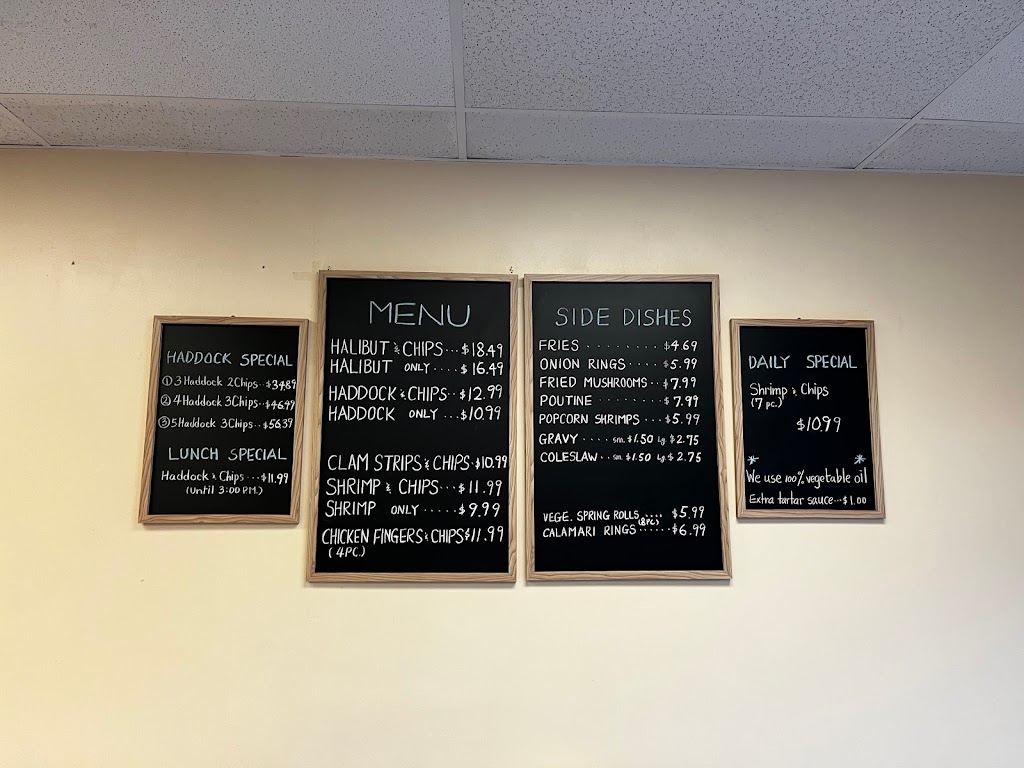 HADDOCK SPECIAL
① 3 Haddock 2 Chips.. $34.89
② 4 Haddock 3 Chips.. $46.99
③ 5 Haddock 3 Chips.. $56.39
LUNCH SPECIAL
Haddock & Chips... $11.99
(until 3:00 P.M.)
MENU
HALIBUT & CHIPS... $18.49
HALIBUT ONLY.... $16.49
HADDOCK & CHIPS... $12.99
HADDOCK ONLY ... $10.99
CLAM STRIPS & CHIPS. $10.99
SHRIMP & CHIPS... $11.99
SHRIMP ONLY ..... $9.99
CHICKEN FINGERS & CHIPS $11.99
(4PC.)
SIDE DISHES
FRIES ......... $4.69
ONION RINGS..... $5.99
FRIED MUSHROOMS.. $7.99
POUTINE ........ $7.99
POPCORN SHRIMPS .... $5.99
GRAVY .... sm. $1.50 Lg. $2.75
COLESLAW .. sm. $1.50 Lg. $2.75
VEGE. SPRING ROLLS .... $5.99
(8PC)
CALAMARI RINGS ...... $6.99
DAILY SPECIAL
Shrimp & Chips
(7 pc.)
$10.99
* *
We use 100% vegetable oil
Extra tartar sauce... $1.00